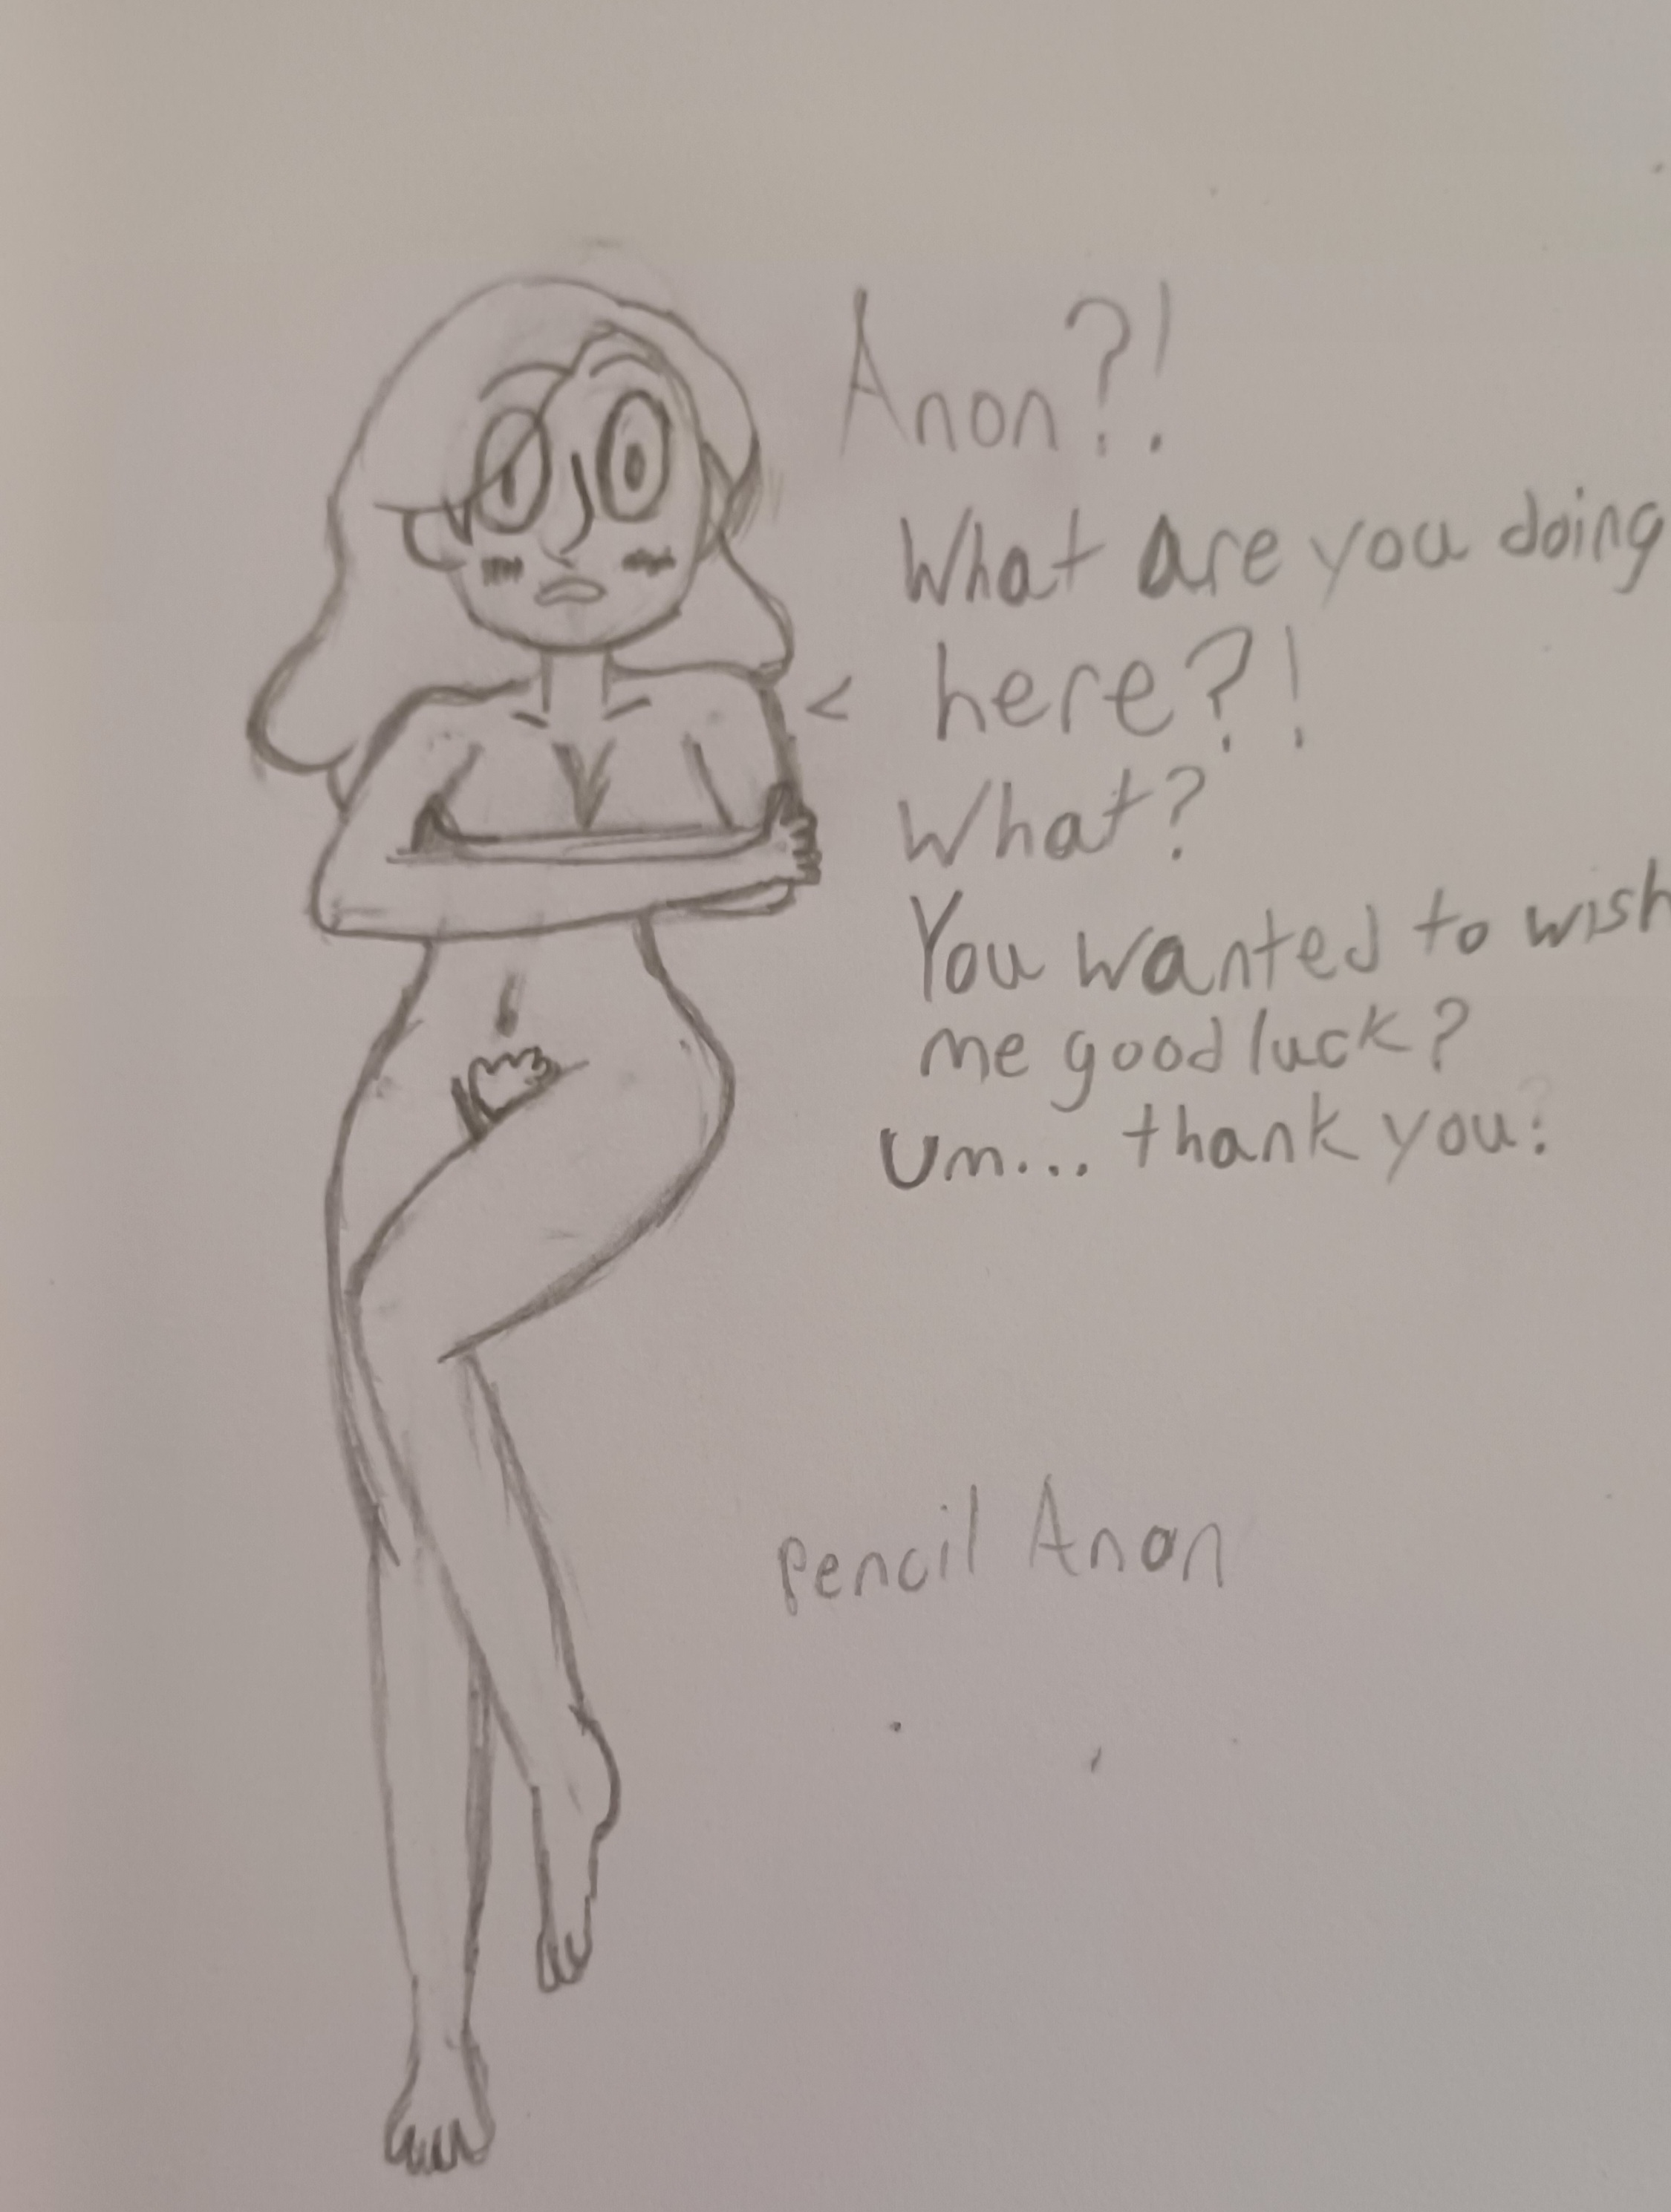 Anon?!
What are you doing
here?!
What?
You wanted to wish
me good luck?
Um... thank you?
Pencil Anon